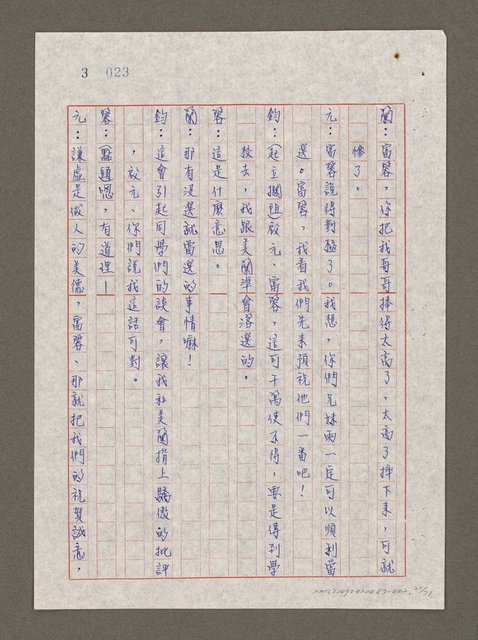 3 023
蘭：富蓉，你把我哥哥捧得太高了，太高了摔下來，可就
慘了。
元：富蓉說得對極了。我想，你們兄妹兩一定可以順利當
選。富蓉，我看我們先來預祝他們一番吧！
鈞：（起立攔阻）啟元、富蓉，這可千萬使不得，要是傳到學
校去，我跟美蘭準會落選的。
蓉：這是什麼意思。
蘭：那有沒選就當選的事情嘛！
鈞：這會引起同學們的誤會，讓我和美蘭揹上驕傲的批評
，啟元、你們說我這話可對。
蓉：（點頭）嗯，有道理—
元：謙虛是做人的美德，富蓉、那就把我們的祝賀誠意，